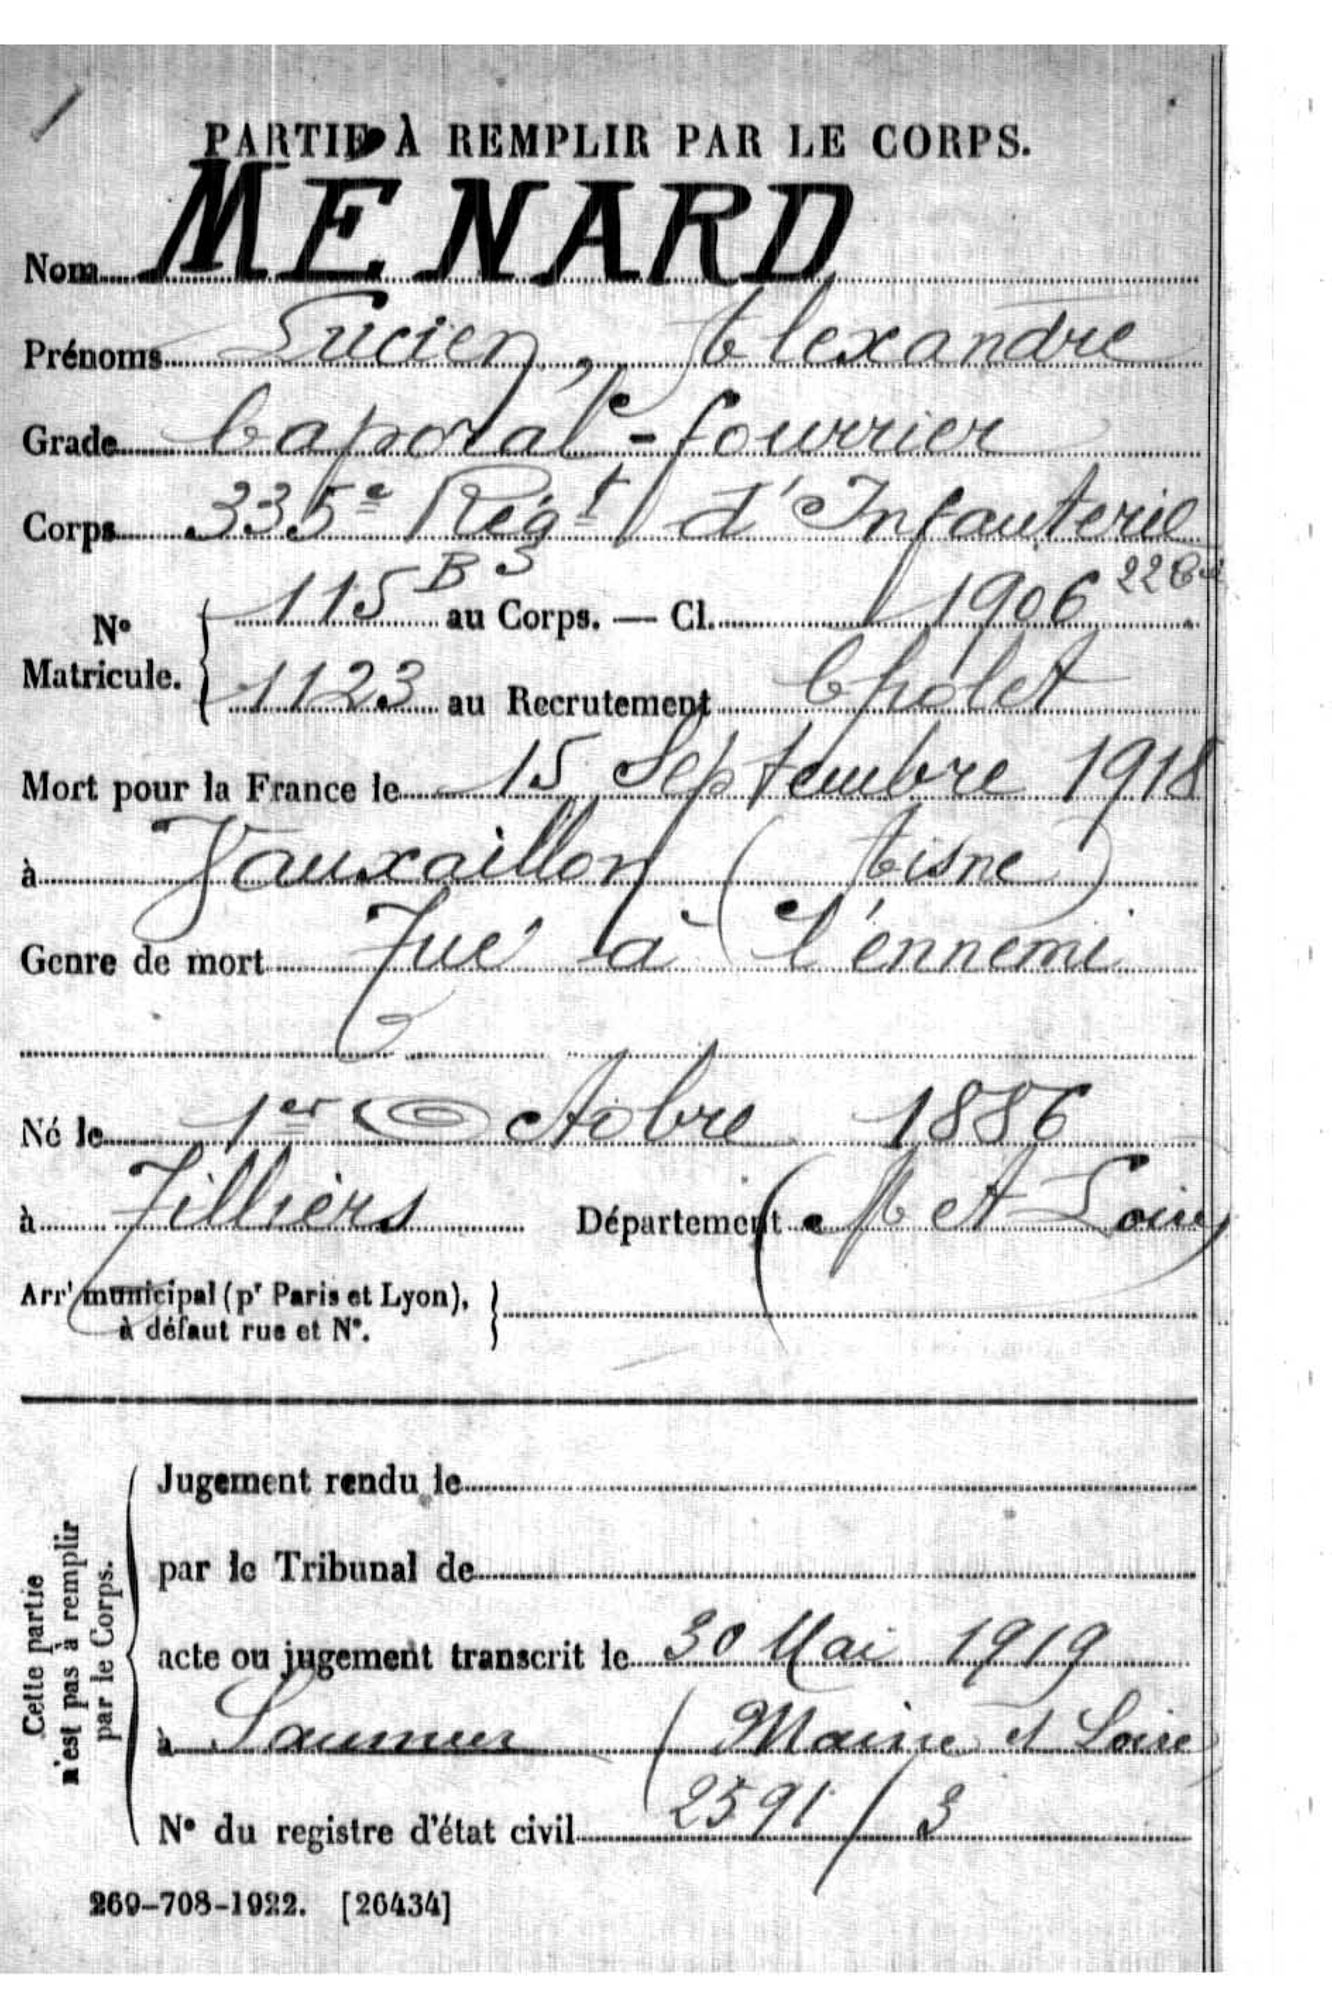 PARTIE À REMPLIR PAR LE CORPS.
Nom MÉNARD
Prénoms Lucien, Alexandre
Grade Caporal-fourrier
Corps 335e Régt d'Infanterie
N° Matricule. 115 BS au Corps. — Cl. 1906
1123 au Recrutement Cholet
Mort pour la France le 15 Septembre 1918
à Vauxaillon (Aisne)
Genre de mort Tué à l'ennemi
Né le 1er Octobre 1886
à Tilliers Département (M et Loire)
Arrt municipal (pr Paris et Lyon), à défaut rue et N°.
Cette partie n'est pas à remplir par le Corps.
Jugement rendu le
par le Tribunal de
acte ou jugement transcrit le 30 Mai 1919
à Saumur (Maine et Loire)
N° du registre d'état civil 2591/3
269-708-1922. [26434]